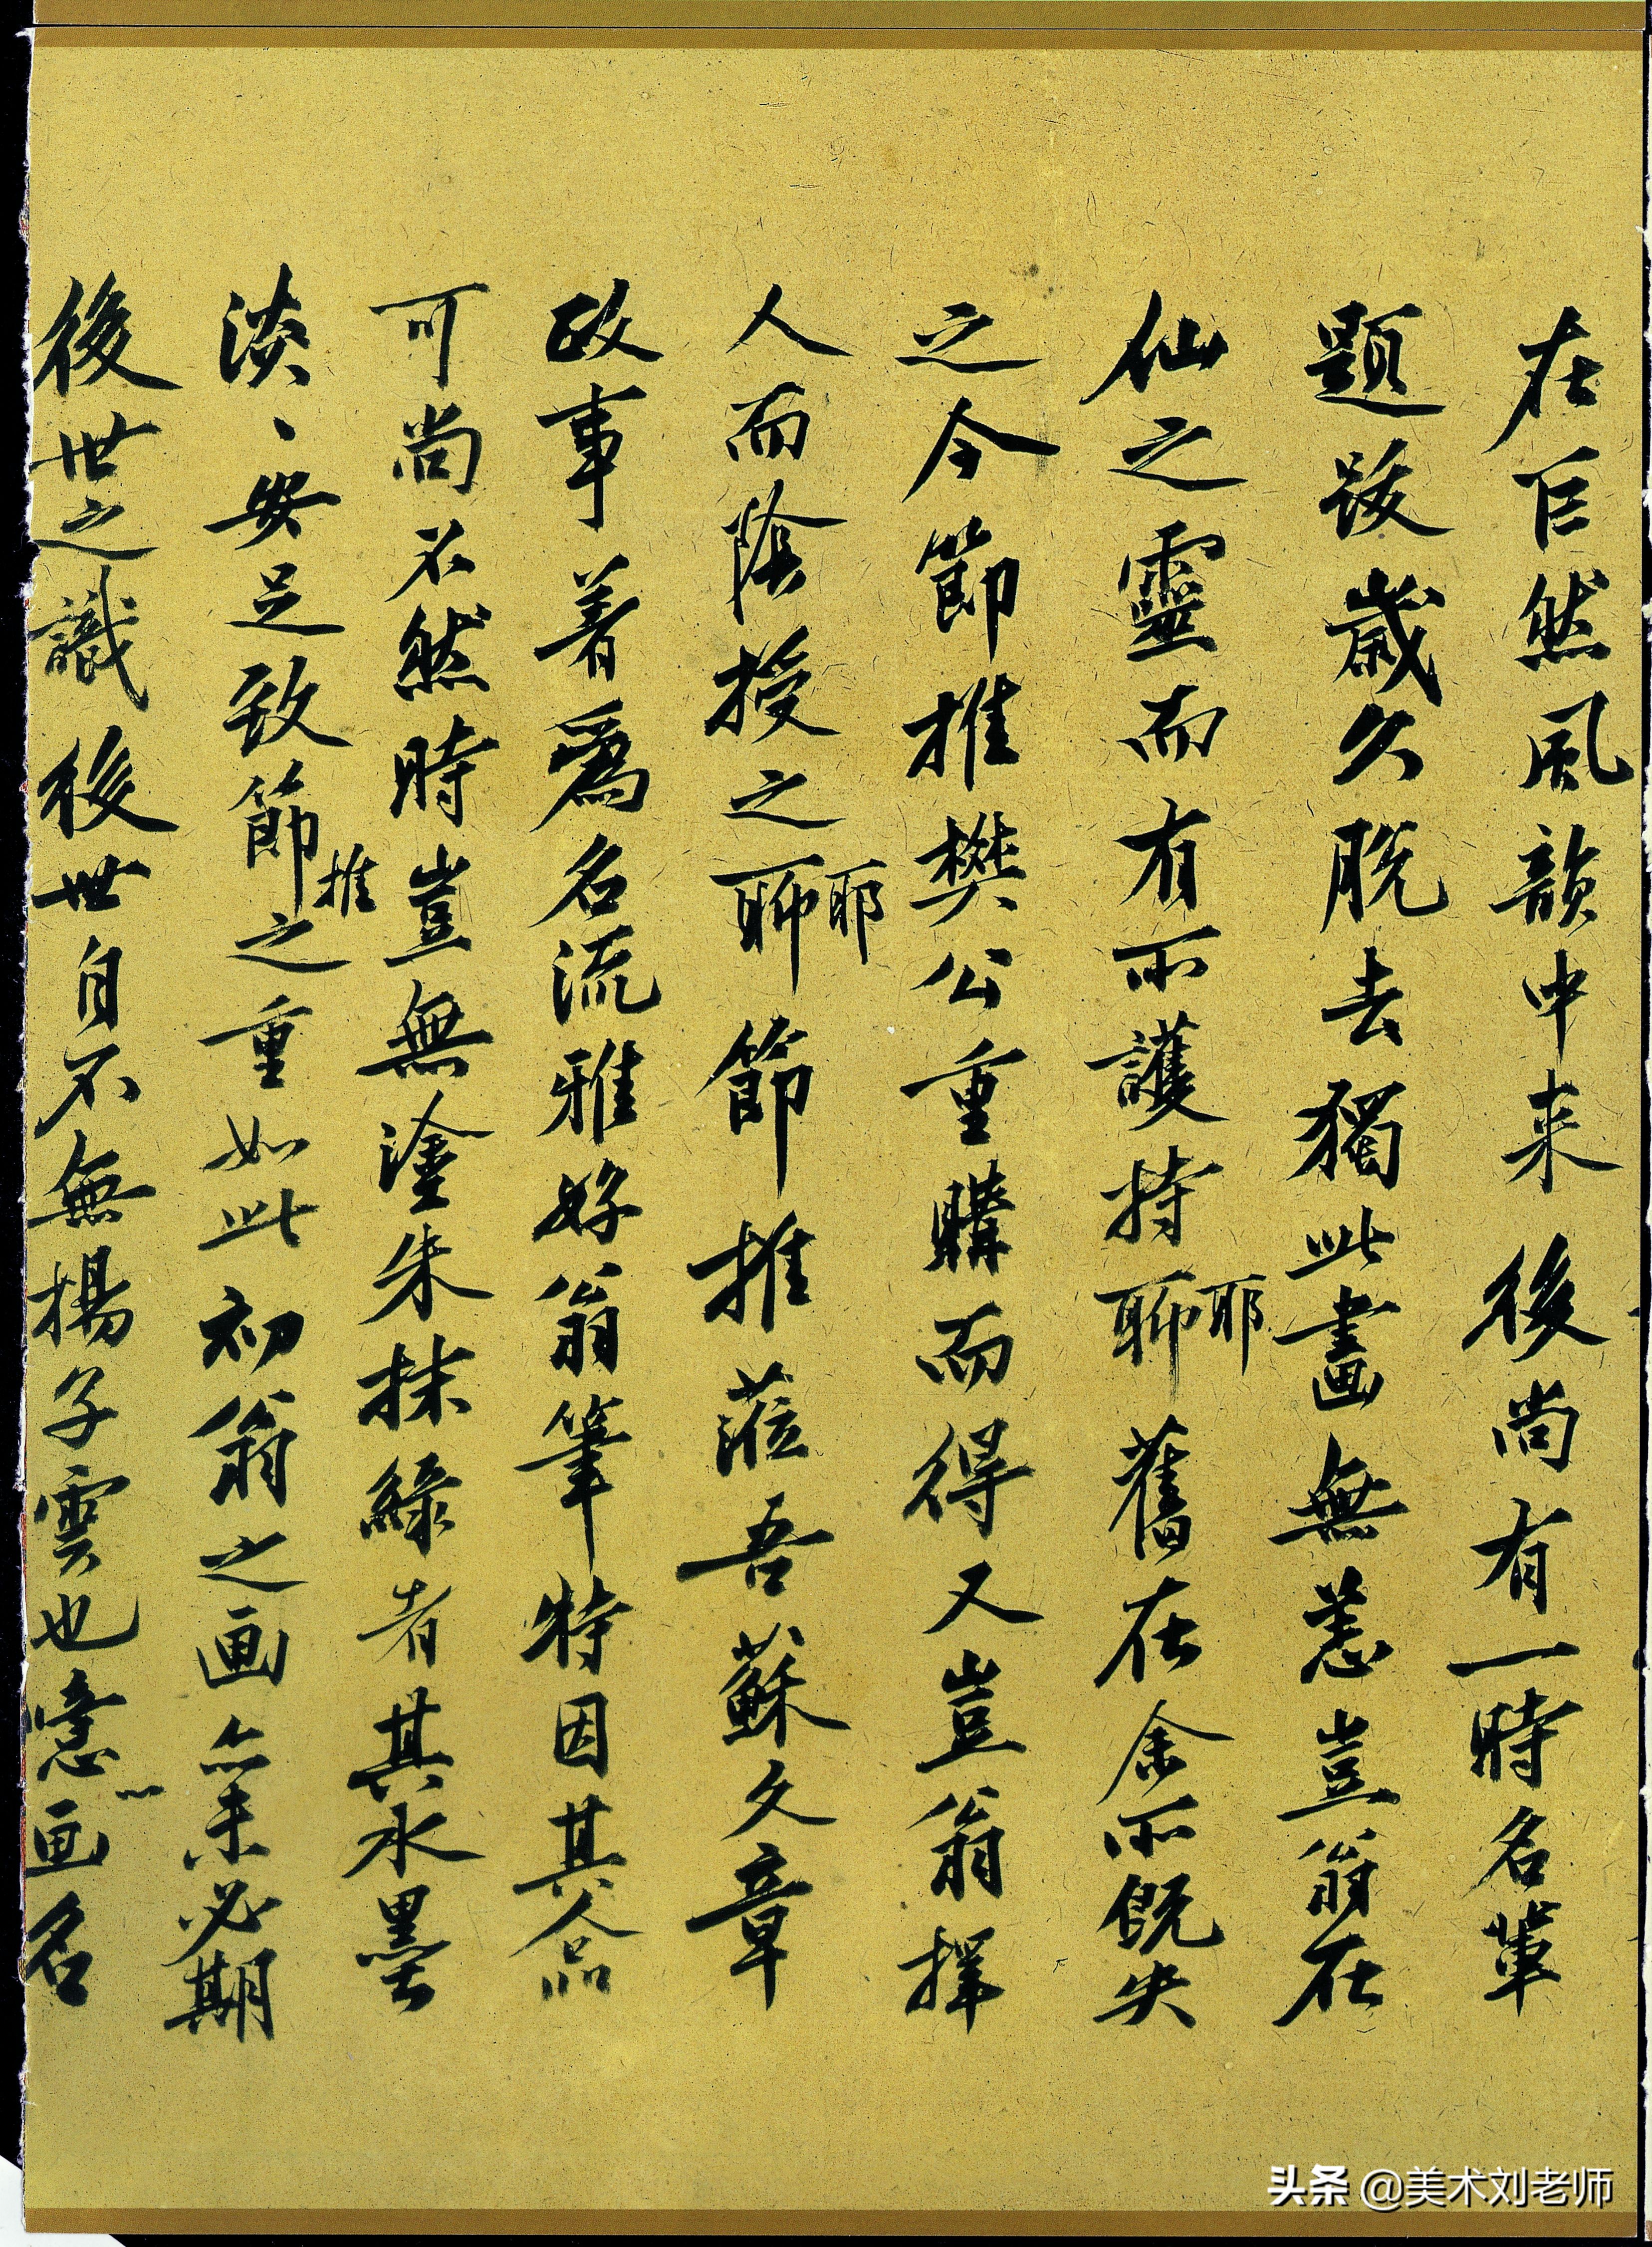 在巨然風韻中来後尚有一時名輩
題跋歲久脫去獨此畫無恙豈翁在
仙之靈而有所護持聊耶舊在余所既失
之今節推樊公重購而得又豈翁擇
人而陰授之聊耶節推蒞吾蘇文章
政事著爲名流雅好翁筆特因其人品
可尚不然時豈無塗朱抹綠者其水墨
淡、安足致節推之重如此初翁之画亦未必期
後世之識後世自不無揚子雲也噫画名
头条 @美术刘老师